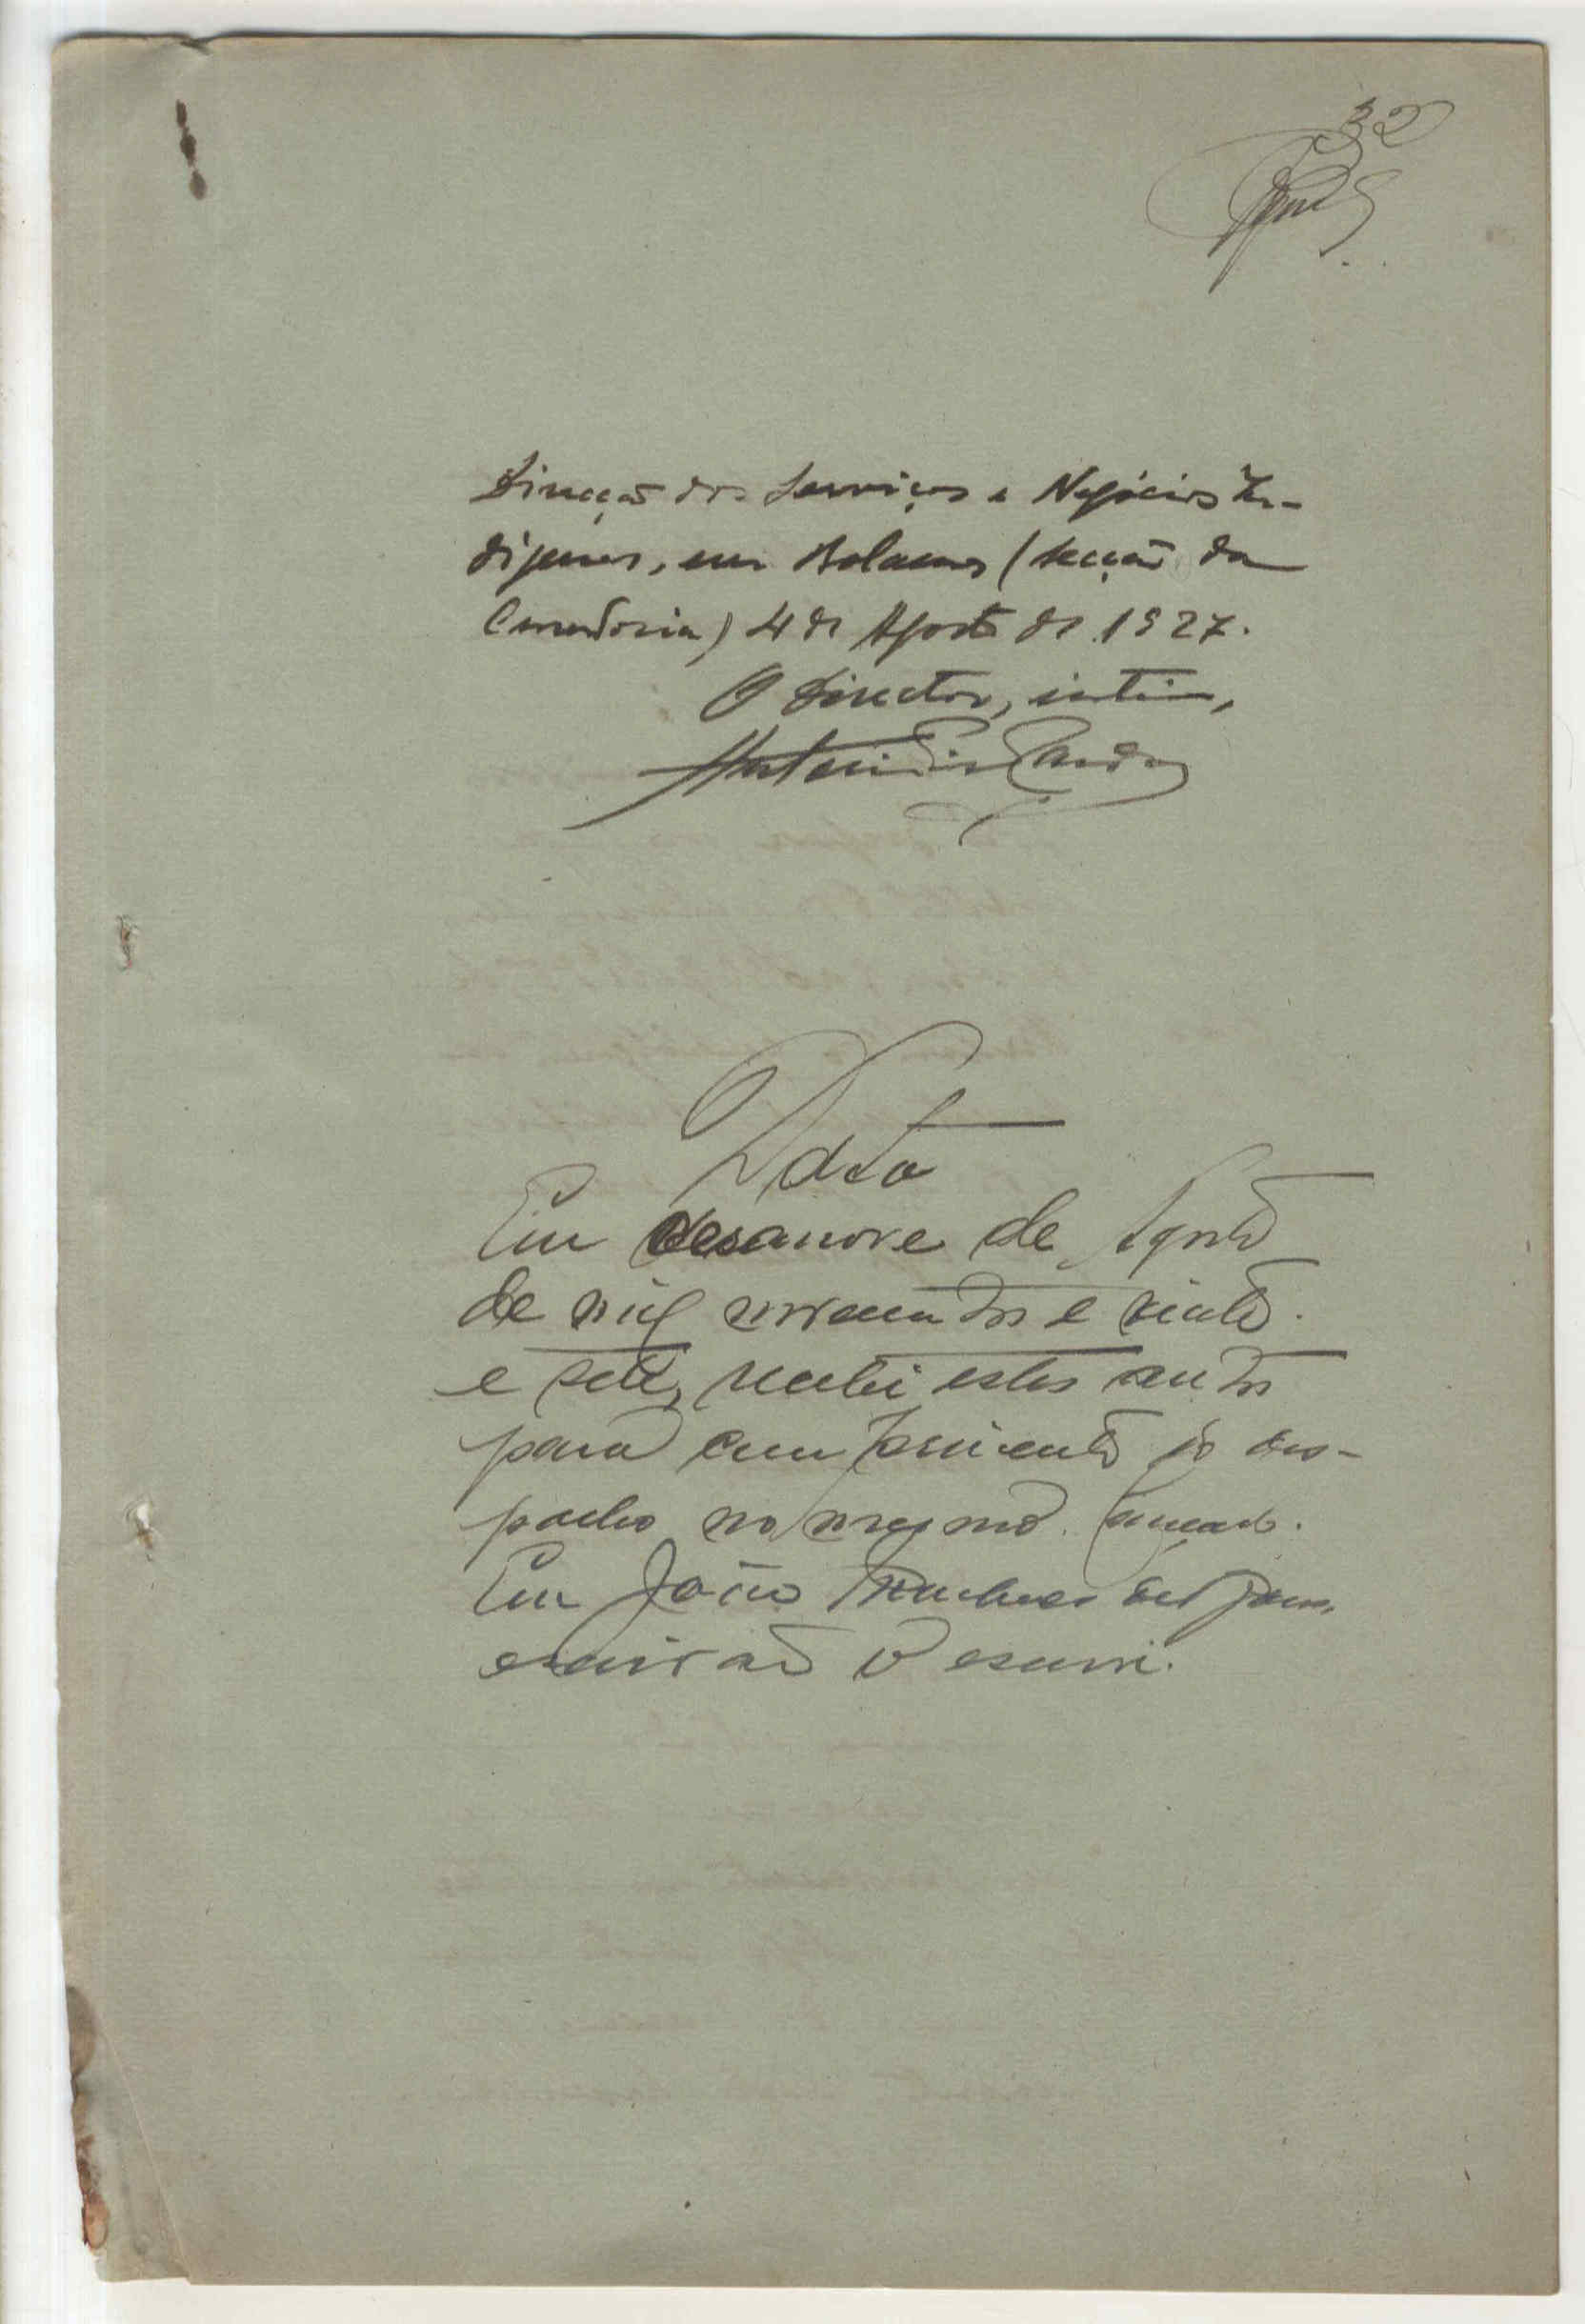 32
Direcção dos Serviços e Negócios In-
digenas, em Bolama, (secção da
Curadoria) 4 de Agosto de 1927.
O Director, intº,
Data
Em desanove de Agosto
de mil novecentos e vinte
e sete, recebi estes autos
para cumprimento do des-
pacho no mesmo
Eu João
escrivão o escrevi.